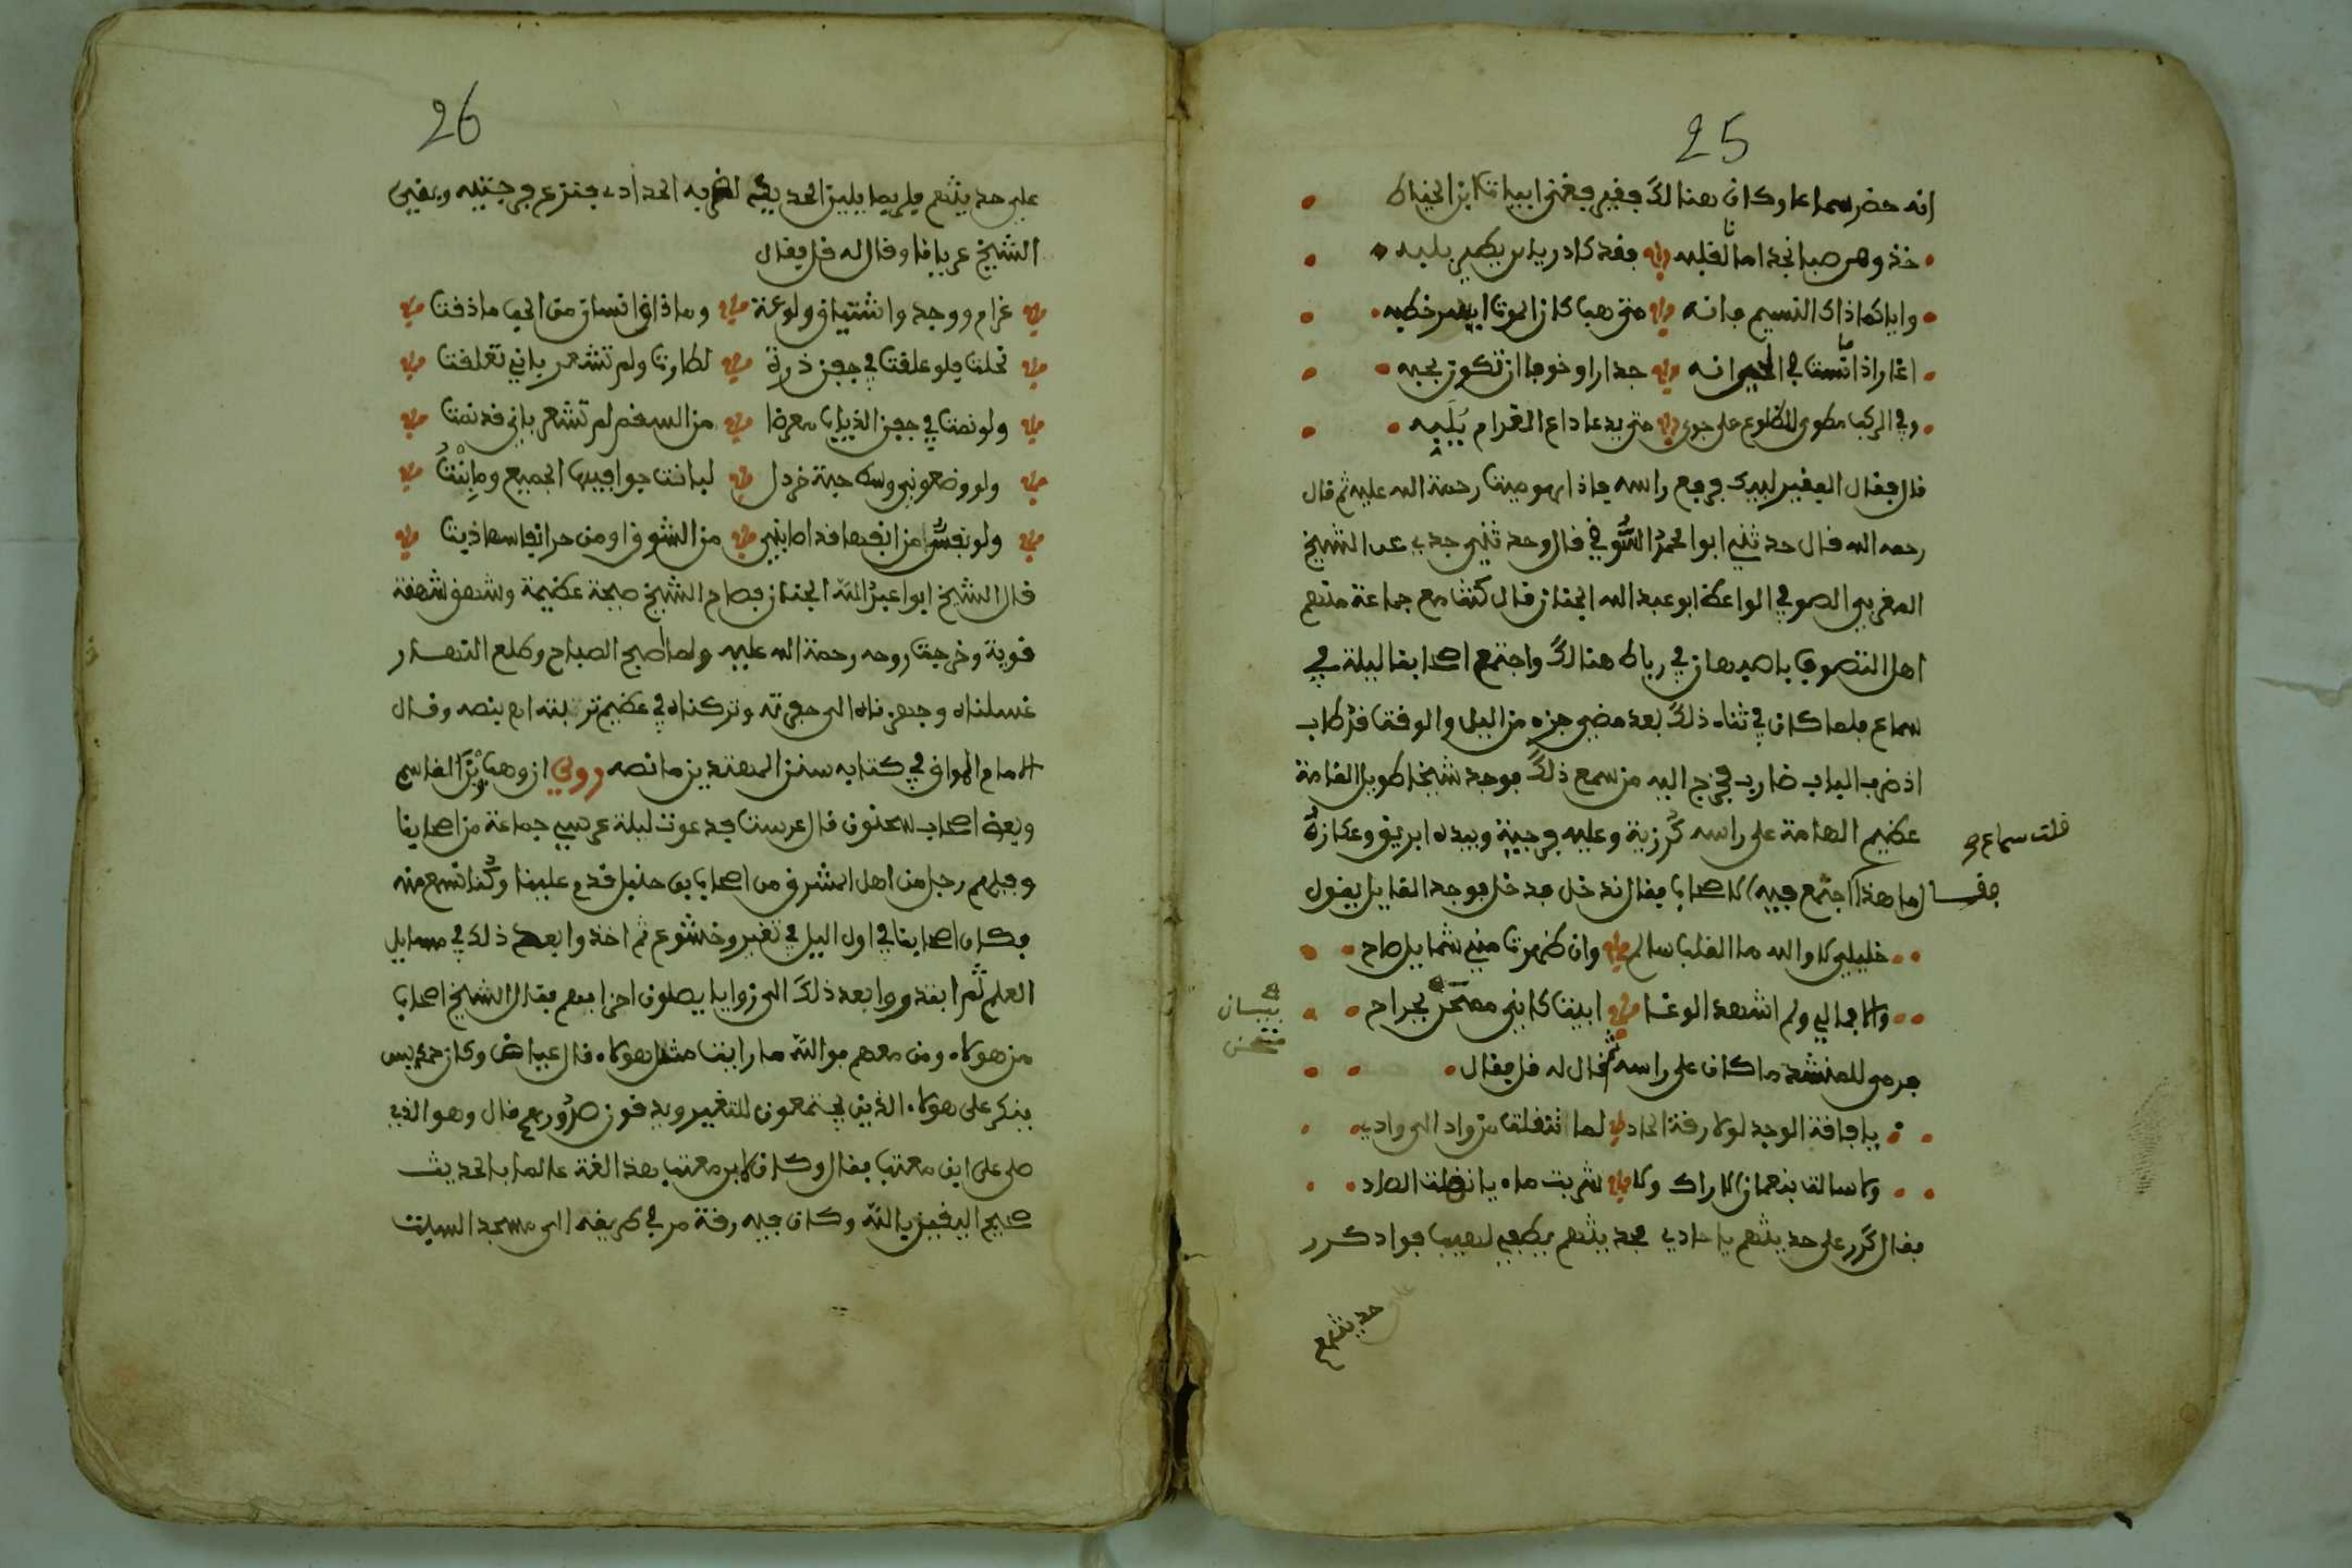 25
انه حضر سماعا وكان هنالك فقير فغنى ابياتا ابن الخياط
خذوا من صبا نجد امانا لقلبه فقد كاد رياها يطير بلبه
واياكما ذاك النسيم فانه متى هب كان الموت ايسر خطبه
اغار اذا انست في الحي انه حذارا وخوفا ان تكون لحبه
وفي الركب مطوى الضلوع على جوى متى يدعه داع الغرام يلبه
قال فقال الفقير لبيك ورفع راسه فاذا هو ميت رحمة الله عليه ثم قال
رحمه الله قال حدثني ابوا محمد السوفي قال وحدثني جدي عن الشيخ
المغربي الصوفي الواعظ ابو عبد الله الجنان قال كنت مع جماعة منهم
اهل التصوف باصبهان في رباط هنالك واجتمع اصحابنا ليلة في
سماع فلما كان في ثناء ذلك بعد مضي جزء من اليل والوقت قد طاب
اذ ضرب الباب ضارب فخرج اليه من سمع ذلك فوجد شيخا طويل القامة
عظيم الهامة على راسه كرزية وعليه فرجية وبيده ابريق وعكازة
قلت سماع
فقال ما هذا اجتمع فيه الاصحاب فقال ندخل فدخل فوجد القايل يقول
خليلي لا والله ما القلب سالم وان ظهرت مني شمايل صاح
والا فما لي ولم اشهد الوغا ابيت كانني مثخن بجراح
بيان
مثخن
فرمى للمنشد ما كان على راسه ثم قال له قل فقال
يا فاقة الوجد لولا رقة الحاد لما انتقلت من واد الى وادي
ولا سالت بنعمان الاراك ولا شربت ماء يا نفلت الصاد
فقال كرر على حديثهم يا حادي فحديثهم يطفي لهيب فواد كرر
على حديثهم
26
على حديثهم فلربما يلين الحديد لضربه الحدادي فنزع فرجيته وبقي
الشيخ عريانا وقال له قل فقال
غرام ووجد واشتياق ولوعة وما ذاق انسان من الحب ما ذقت
نحلت فلو علقت في جفن ذرة لطارت ولم تشعر باني تعلقت
ولو نمت في جفن الذباب معرضا من السقم لم تشعر باني قد نمت
ولو وضعوني وسط حبة خردل لبانت جوافيها الجميع وما بنت
ولو نفس من انفسها قد اصابني من الشوق او من حر انفاسها ذبت
قال الشيخ ابوا عبد الله الجنان فصاح الشيخ صيحة عظيمة وشهق شهقة
قوية وخرجت روحه رحمة الله عليه ولما اصبح الصباح وطلع النهار
غسلناه وجهزناه الى حفرته وتركناه في عظيم تربته اه بنصه وقال
الامام المواق في كتابه سنن المهتدين ما نصه روي ان وهب بن القاسم
وبعض اصحاب سحنون قال عرست فدعوت ليلة عرسي جماعة من اصحابنا
وفيهم رجل من اهل المشرق من اصحاب بن حنبل قدم علينا وكنا نسمع منه
فكان اصحابنا في اول اليل في تغبير وخشوع ثم اخذوا بعد ذلك في مسايل
العلم ثم ابتدروا بعد ذلك الى زوايا يصلون احزابهم فقال الشيخ اصحاب
من هولاء ومن معهم فوالله ما رايت مثل هولاء قال عياض وكان حمديس
ينكر على هولاء الذين يجتمعون للتغبير ويدقون صدورهم قال وهو الذي
صلى على ابن معتب فقال وكان لابن معتب بهذا لغة عالما بالحديث
صحيح اليقين بالله وكان فيه رقة مر في طريقه الى مسجد السبت